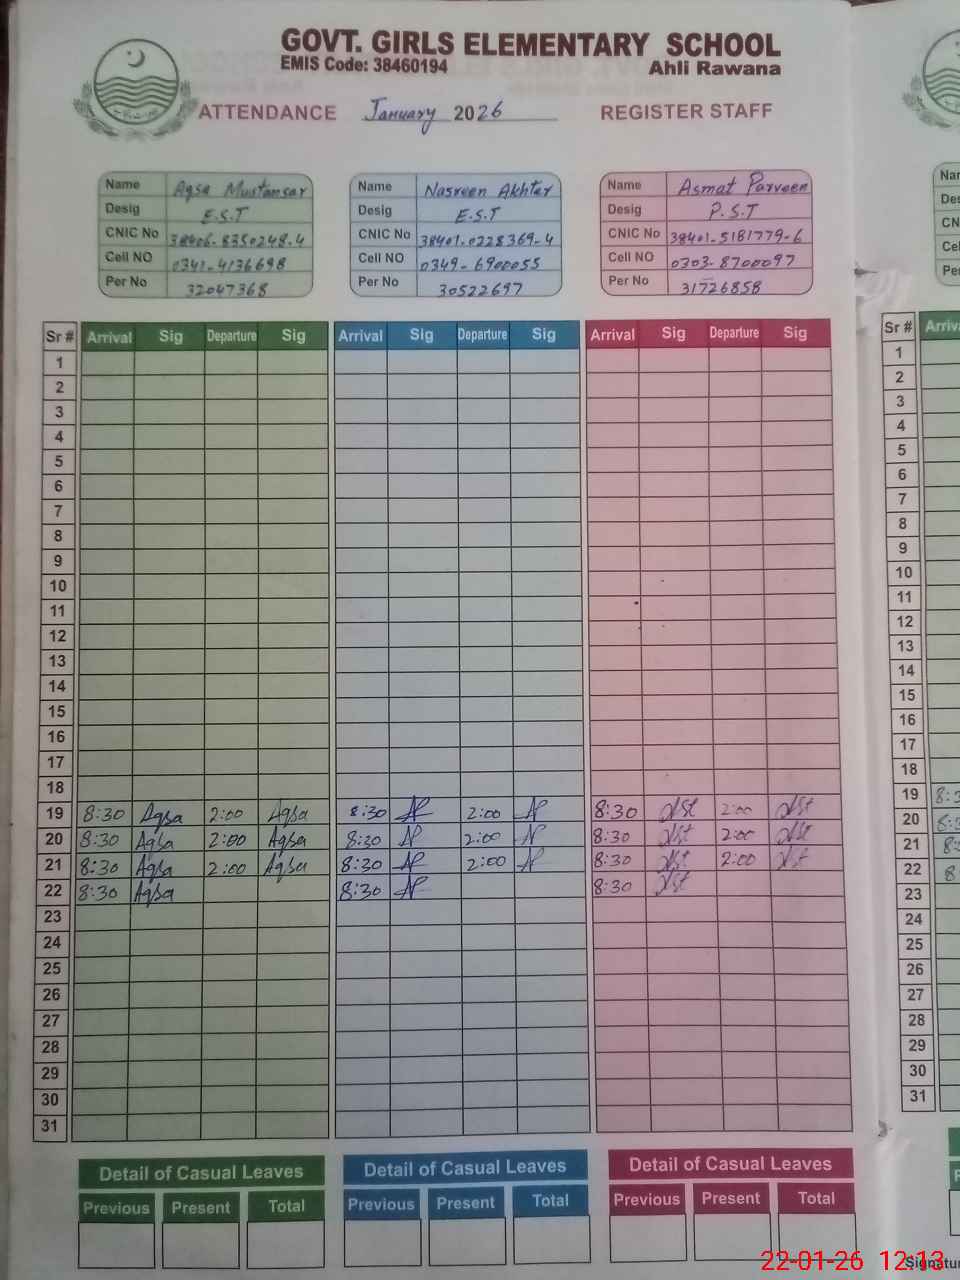 GOVT. GIRLS ELEMENTARY SCHOOL
EMIS Code: 38460194 Ahli Rawana
ATTENDANCE January 2026 REGISTER STAFF
Name Aqsa Mustansar
Desig E.S.T
CNIC No 38406-8350248-4
Cell NO 0341-4136698
Per No 32047368
Name Nasreen Akhter
Desig E.S.T
CNIC No 38401-0228369-4
Cell NO 0349-6900055
Per No 30522697
Name Asmat Parveen
Desig P.S.T
CNIC No 38401-5181779-6
Cell NO 0303-8700097
Per No 31726858
Sr # Arrival Sig Departure Sig Arrival Sig Departure Sig Arrival Sig Departure Sig
1
2
3
4
5
6
7
8
9
10
11
12
13
14
15
16
17
18
19 8:30 Aqsa 2:00 Aqsa 8:30 2:00 8:30 2:00
20 8:30 Aqsa 2:00 Aqsa 8:30 2:00 8:30 2:00
21 8:30 Aqsa 2:00 Aqsa 8:30 2:00 8:30 2:00
22 8:30 Aqsa 8:30 8:30
23
24
25
26
27
28
29
30
31
Detail of Casual Leaves Detail of Casual Leaves Detail of Casual Leaves
Previous Present Total Previous Present Total Previous Present Total
Sr #
1
2
3
4
5
6
7
8
9
10
11
12
13
14
15
16
17
18
19
20
21
22
23
24
25
26
27
28
29
30
31
22-01-26 12:13